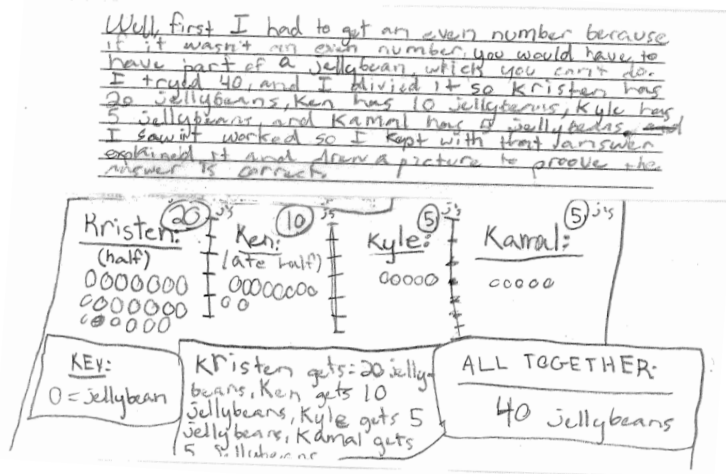 Well, first I had to get an even number because
if it wasn't an even number, you would have to
have part of a jellybean, which you can't do.
I tryed 40, and I divied it so Kristen has
20 jellybeans, Ken has 10 jellybeans, Kyle has
5 jellybeans, and Kamal has 5 jellybeans, and
I saw it worked so I kept with that answer
explained it and drew a picture to proove the
answer is correct.
Kristen: 20 j's
(half)
Ken: 10 j's
(ate half)
Kyle: 5 j's
Kamal: 5 j's
KEY:
O = jellybean
Kristen gets: 20 jelly-
beans, Ken gets 10
jellybeans, Kyle gets 5
jellybeans, Kamal gets
5 jellybeans
ALL TOGETHER:
40 jellybeans